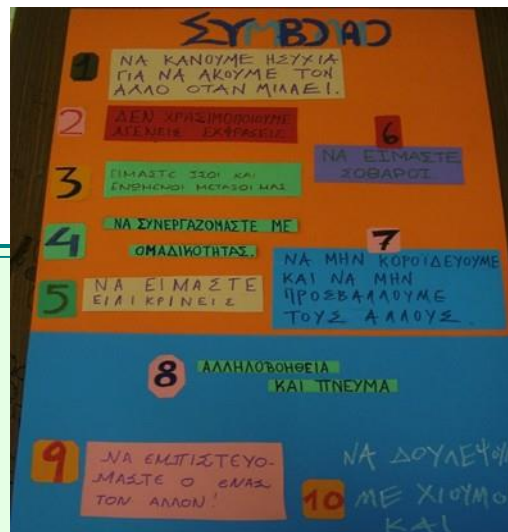 ΣΥΜΒΟΛΑΙΟ
1
ΝΑ ΚΑΝΟΥΜΕ ΗΣΥΧΙΑ
ΓΙΑ ΝΑ ΑΚΟΥΜΕ ΤΟΝ
ΑΛΛΟ ΟΤΑΝ ΜΙΛΑΕΙ.
2
ΔΕΝ ΧΡΗΣΙΜΟΠΟΙΟΥΜΕ
ΑΓΕΝΕΙΣ ΕΚΦΡΑΣΕΙΣ
3
ΕΙΜΑΣΤΕ ΙΣΟΙ ΚΑΙ
ΕΝΩΜΕΝΟΙ ΜΕΤΑΞΟΙ ΜΑΣ
4
ΝΑ ΣΥΝΕΡΓΑΖΟΜΑΣΤΕ ΜΕ
ΟΜΑΔΙΚΟΤΗΤΑΣ.
5
ΝΑ ΕΙΜΑΣΤΕ
ΕΙΛΙΚΡΙΝΕΙΣ
6
ΝΑ ΕΙΜΑΣΤΕ
ΣΟΒΑΡΟΙ
7
ΝΑ ΜΗΝ ΚΟΡΟΙΔΕΥΟΥΜΕ
ΚΑΙ ΝΑ ΜΗΝ
ΠΡΟΣΒΑΛΛΟΥΜΕ
ΤΟΥΣ ΑΛΛΟΥΣ.
8
ΑΛΛΗΛΟΒΟΗΘΕΙΑ
ΚΑΙ ΠΝΕΥΜΑ
9
ΝΑ ΕΜΠΙΣΤΕΥΟ-
ΜΑΣΤΕ Ο ΕΝΑΣ
ΤΟΝ ΑΛΛΟΝ!
10
ΝΑ ΔΟΥΛΕΨΟΥ
ΜΕ ΧΙΟΥΜΟ
ΚΑΙ